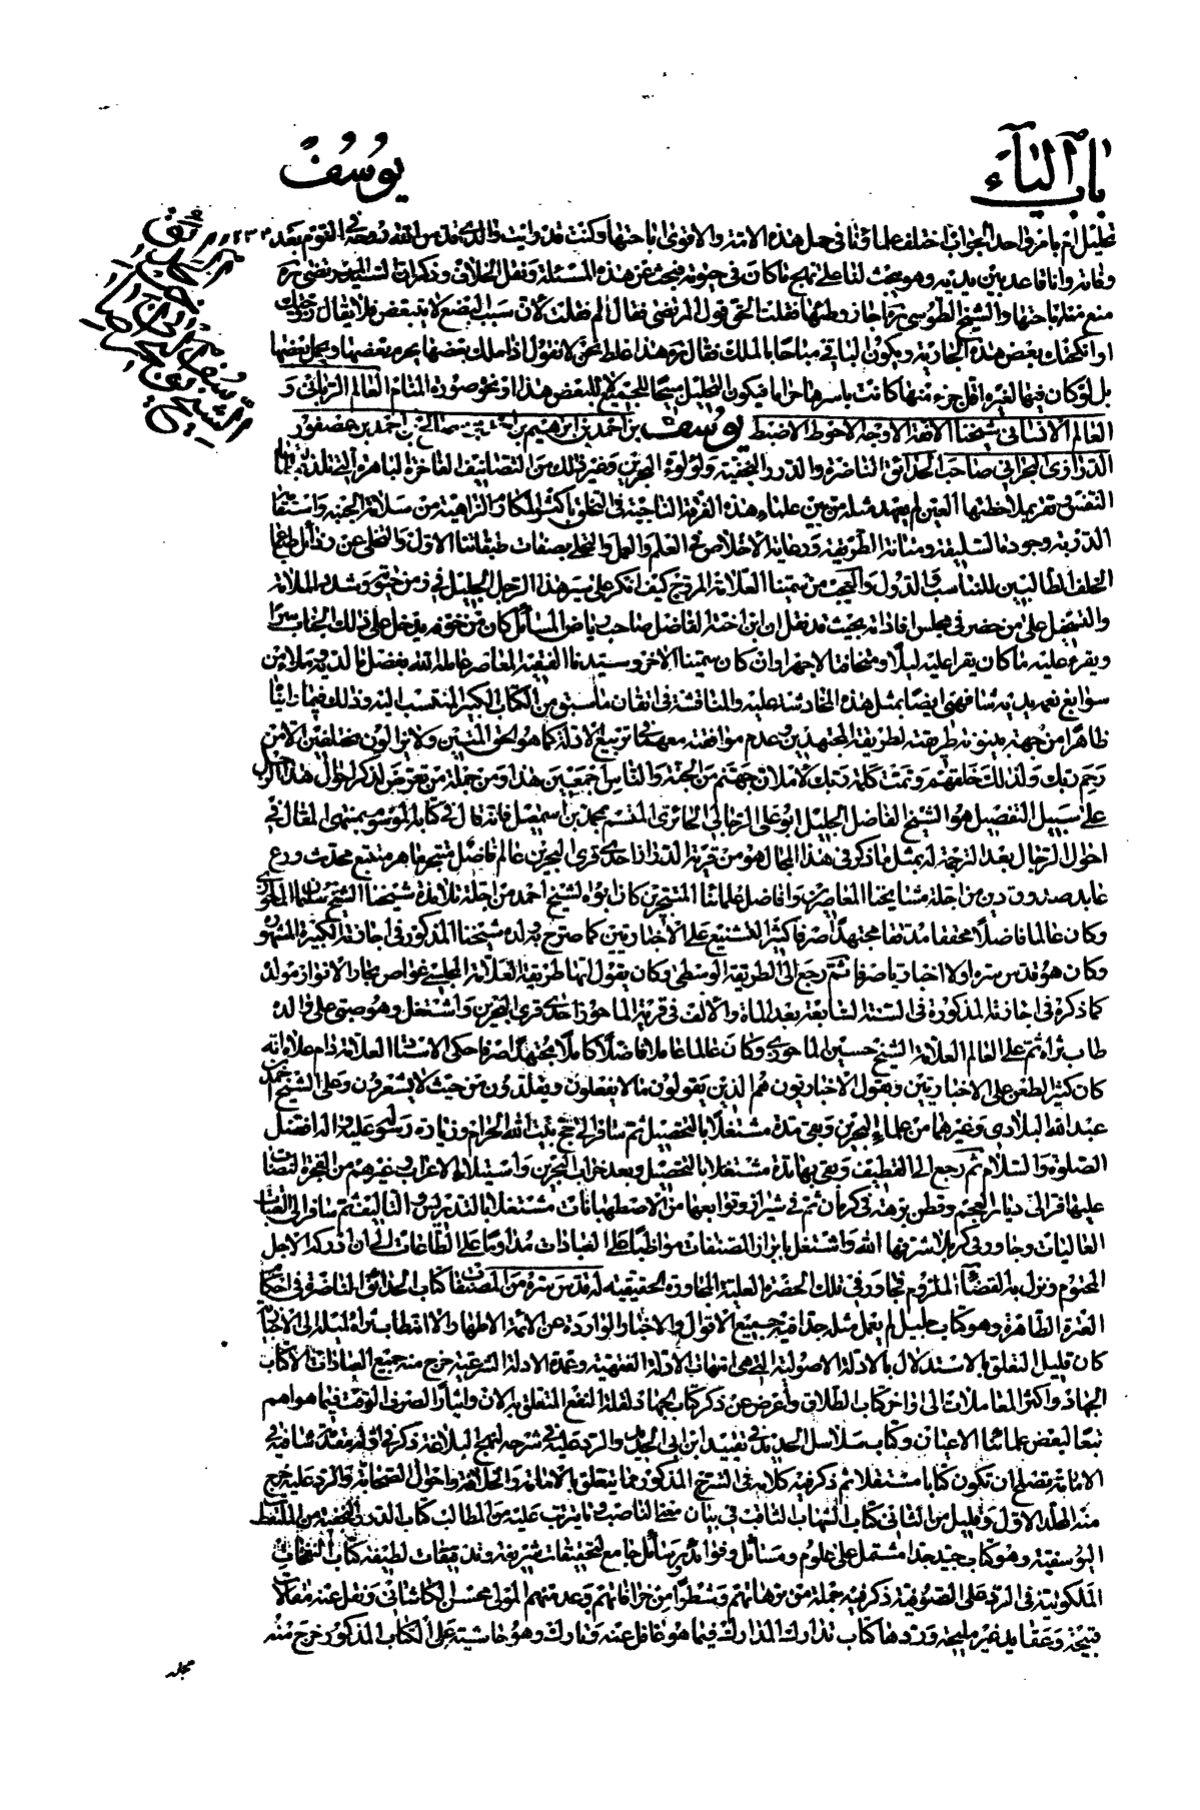 باب الياء
يوسف
تحليل ام بامر واحد الجواب اختلف علماؤنا في حل هذه الامة والاقوى اباحتها وكنت قد رايت والدي قدس الله روحه في النوم بعد
وفاته وانا قاعد بين يديه وهو يبحث لنا على نهج ما كان في حيوته فبحث عن هذه المسئلة ونقل الخلاف وذكر ان السيد المرتضى ره
منع من اباحتها والشيخ الطوسي ره اجاز وطئها فقلت الحق قول المرتضى فقال لم فقلت لان سبب البضع لا يتبعض فلا يقال زوجتك
او انكحتك بعض هذه الجارية ويكون الباقي مباحا بالملك فقال ره هذا غلط نحن لا نقول اذا ملك بعضها يحرم بعضها ويحل بعضها
بل لو كان فيها لغيره اقل جزء منها كانت باسرها حراما فيكون التحليل مبيحا للجميع لا للبعض هذا او نحو صورة المنام العالم الرباني و
العالم الانساني شيخنا الافقه الاوجه الاحوط الاضبط يوسف بن احمد بن ابراهيم بن احمد بن صالح بن احمد بن عصفور
الدرازي البحراني صاحب الحدائق الناضرة والدرر النجفية ولؤلؤة البحرين وغير ذلك من التصانيف الفاخرة الباهرة التي تلذ بها
النفس وتقر بملاحظتها العين لم يعهد مثله من بين علماء هذه الفرقة الناجية في التخلق باكثر المكارم الزاهية من سلامة الجنبة واستقامة
الدربة وجودة السليقة ومتانة الطريقة ورعاية الاخلاص في العلم والعمل والتحلي بصفات طبقاتنا الاول والتخلي عن رذائل طباع
الخلف الطالبين للمناصب والدول والعجب من سمينا العلامة المروج كيف انكر على سر هذا الرجل الجليل في زمن حياته وشدد الملامة
والتفضل على من حضر في مجلس افاداته بحيث قد نقل ان ابن اخته الفاضل صاحب رياض المسائل كان من خوفه يدخل على ذلك الجناب سرا
ويقرء عليه ما كان يقرا عليه ليلا ومخافتا لا جهرا وان كان سمينا الاخر وسيدنا الفقيه المعاصر عامله الله بفضل ما لديه وملاء من
سوابغ نعمه يديه شافهني ايضا بمثل هذه المخادشة عليه والمناقشة في اتقان ما سبق من الكتاب الكبير المنتسب اليه وذلك فيما راينا
ظاهرا من جهة مبينونة طريقته لطريقة المجتهدين وعدم موافقته معهم في تربيع الادلة كما هو الحق المبين ولا يزالون مختلفين الا من
رحم ربك ولذلك خلقهم وتمت كلمة ربك لاملان جهنم من الجنة والناس اجمعين هذا ومن جملة من تعرض لذكر احوال هذا الرجل
على سبيل التفصيل هو الشيخ الفاضل الجليل ابو على الرجالي الحائري المتسم بمحمد بن اسمعيل فانه قال في كتابه الموسوم بمنتهى المقال في
احوال الرجال بعد الترجمة له بمثل ما ذكر في هذا المجال هو من قرية الدراز احدى قرى البحرين عالم فاضل متبحر ماهر متتبع محدث ورع
عابد صدوق دين من اجلة مشايخنا المعاصرين وافاضل علمائنا المتبحرين كان ابوه الشيخ احمد من اجلة تلامذة شيخنا الشيخ سليمان الماحوزي
وكان عالما فاضلا محققا مدققا مجتهدا صرفا كثير التشنيع على الاخباريين كما صرح به ولده شيخنا المذكور في اجازته الكبيرة المشهورة
وكان هو قدس سره اولا اخباريا صرفا ثم رجع الى الطريقة الوسطى وكان يقول انها طريقة العلامة المجلسي غواص بحار الانوار مولده
كما ذكره في اجازته المذكورة في السنة السابعة بعد المائة والالف في قرية الماحوز احدى قرى البحرين واشتغل وهو صبي على والده
طاب ثراه ثم على العالم العلامة الشيخ حسين الماحوزي وكان عالما عاملا فاضلا كاملا مجتهدا صرفا حكى الاستاد العلامة دام علاه انه
كان كثير الطعن على الاخباريين ويقول الاخباريون هم الذين يقولون ما لا يفعلون ويقلدون من حيث لا يشعرون وعلى الشيخ احمد بن
عبد الله البلادي وغيرهما من علماء البحرين وبقى مدة مشتغلا بالتحصيل ثم سافر الى حج بيت الله الحرام وزيارة رسوله عليه واله افضل
الصلوة والسلام ثم رجع الى القطيف وبقى بها مدة مشتغلا بالتحصيل وبعد خراب البحرين واستيلاء الاعراب وغيرهم من الفجرة النصاب
عليها فر الى ديار العجم وقطن برهة في كرمان ثم في شيراز وتوابعها من الاصطهبانات مشتغلا بالتدريس والتاليف ثم سافر الى العتبات
العاليات وجاور في كربلا شرفها الله واشتغل بابراز المصنفات مواظبا على العبادات مداوما على الطاعات الى ان ادركه الاجل
المحتوم ونزل به القضاء الملزوم فجاور في تلك الحضرة العلية المجاورة الحقيقية له قدس سره من المصنفات كتاب الحدائق الناضرة في احكام
العترة الطاهرة وهو كتاب جليل لم يعمل مثله جدا فيه جميع الاقوال والاخبار الواردة عن الائمة الاطهار الا انه طاب ثراه لميله الى الاخبار
كان قليل التعلق بالاستدلال بالادلة الاصولية التي هي امهات الادلة الفقهية وعمدة الادلة الشرعية خرج منه جميع العبادات الا كتاب
الجهاد واكثر المعاملات الى اواخر كتاب الطلاق واعرض عن ذكر كتاب الجهاد لقلة النفع المتعلق به الان وايثارا لصرف الوقت فيما هو اهم
تبعا لبعض علمائنا الاعيان وكتاب سلاسل الحديد في تقييد ابن ابي الحديد والرد عليه في شرحه لنهج البلاغة ذكر في اوله مقدمة شافية في
الامامة تصلح ان تكون كتابا مستقلا ثم ذكر فيه كلامه في الشرح المذكور مما يتعلق بالامامة والخلافة واحوال الصحابة والرد عليه خرج
منه المجلد الاول وقليل من الثاني كتاب الشهاب الثاقب في بيان معنى الناصب وما يترتب عليه من المطالب كتاب الدرر النجفية من الملتقطات
اليوسفية وهو كتاب جيد جدا مشتمل على علوم ومسائل وفوائد ورسائل جامع لتحقيقات شريفة وتدقيقات لطيفة كتاب النفحات
الملكوتية في الرد على الصوفية ذكر فيه جملة من ترهاتهم وشطرا من خرافاتهم وعد منهم المولى محسن الكاشاني ونقل عنه مقالات
قبيحة وعقايد غير مليحة ورد ها كتاب تدارك المدارك فيما هو غافل عنه وتارك وهو حاشية على الكتاب المذكور خرج منه
مجلد
الشيخ يوسف البحراني صاحب الحدائق